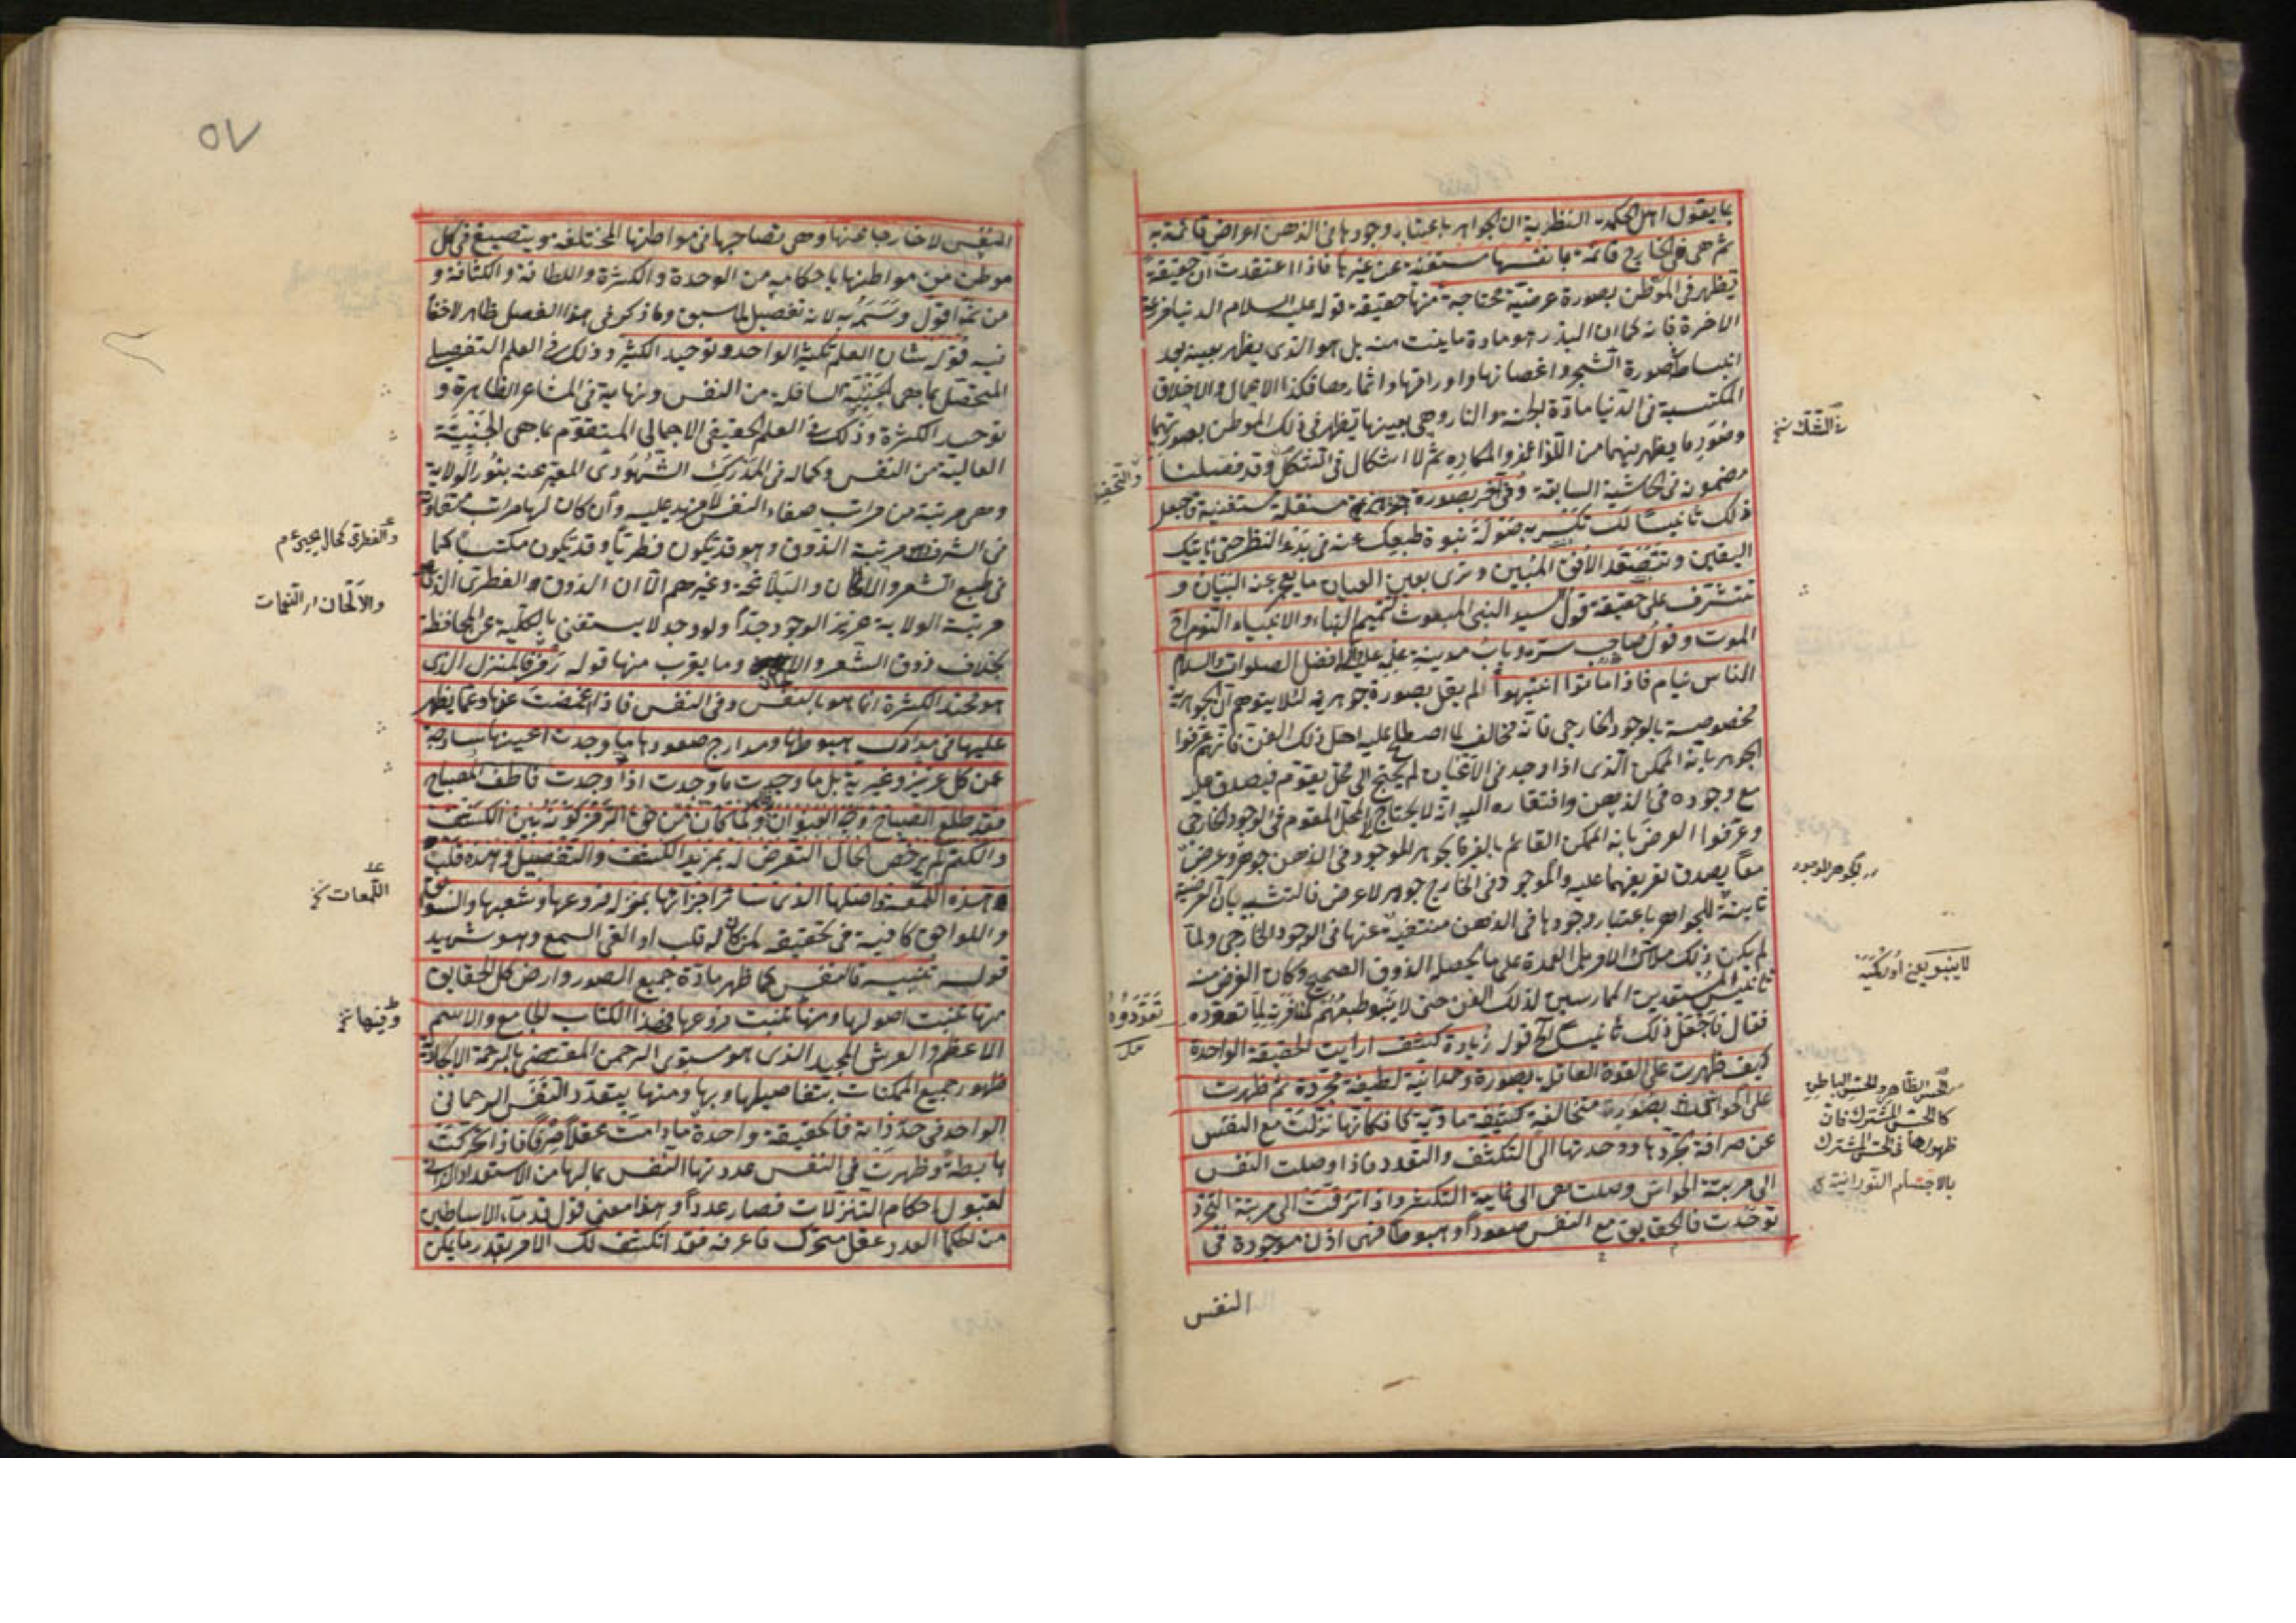 بما يقول اهل الحكمة النظرية ان الجواهر باعتبار وجودها فى الذهن اعراض قائمة به
ثم هى فى الخارج قائمة بانفسها مستغنية عن غيرها فاذا اعتقدت ان حقيقة
تظهر فى الموطن بصورة عرضية محتاجة منها حقيقة قوله عليه السلام الدنيا مزرعة
الاخرة فانه كما ان البذر هو مادة ما ينبت منه بل هو الذى يظهر بعينه بعد
انبساط صورة الشجر واغصانها واوراقها واثمارها فكذا الاعمال والاخلاق
المكتسبة فى الدنيا مادة الجنة والنار وهى بعينها تظهر فى ذلك الموطن بصورتهما
وصور ما يظهر فيهما من اللذائذ والمكاره ثم لا اشكال فى الشكل وقد فصلنا
مضمونه فى الحاشية السابقة وفى آخر بصورة مستقلة مستغنية فاجعل
ذلك تأنيسا لك تكسر به صولة نبوة طبعك عنه فى بدو النظر حتى يأتيك
اليقين وتصعد الافق المبين وترى بعين العيان ما يعجز عنه البيان و
تتشرف على حقيقة قول سيد النبى المبعوث لتتميم الانباء والانبياء النوم اخ
الموت وقول صاحب سره وباب مدينة علمه عليهما افضل الصلوات والسلام
الناس نيام فاذا ماتوا انتبهوا لم يقل بصورة جوهرية لئلا يتوهم ان الجوهرية
مخصوصة بالوجود الخارجى فانه مخالف لما اصطلح عليه اهل ذلك الفن فانهم عرفوا
الجوهر بانه الممكن الذى اذا وجد فى الاعيان لم يحتج الى محل يقومه فيصدق عليه
مع وجوده فى الذهن وافتقاره اليه انه لا يحتاج الى المحل المقوم فى الوجود الخارجى
وعرفوا العرض بانه الممكن القائم بالغير فالجوهر الموجود فى الذهن جوهر وعرض
معا يصدق تعريفهما عليه والموجود فى الخارج جوهر لا عرض فالتشبيه بان العرضية
ثابتة للجواهر باعتبار وجودها فى الذهن منتفية عنها فى الوجود الخارجى ولما
لم يكن ذلك ملاك الامر بل العمدة على ما يحصله الذوق الصحيح وكان الغرض منه
تأنيس المستعدين الممارسين لذلك الفن حتى لا ينبو طبعهم لمنافرته لما تعوده
فقال فاجعل ذلك تأنيسا لك الخ قوله زيادة كشف ارايت الحقيقة الواحدة
كيف ظهرت على القوة العاقلة بصورة وحدانية لطيفة مجردة ثم ظهرت
على الحواس بصورة متخالفة كثيفة مادية فكانها نزلت مع النفس
عن صرافة تجردها ووحدتها الى التكثف والتعدد فاذا وصلت النفس
الى مرتبة الحواس وصلت هى الى غاية التكثر واذا ترقت الى مرتبة التجرد
توحدت فالحقايق مع النفس صعودا وهبوطا فهى اذن موجودة فى
النفس
التشكك نخ
والتحقيق
الجوهر الموجود
لا ينبو يعنى
تعودوه
الحس الظاهر والحس الباطن
كالحس المشترك فان
ظهورها فى الحس المشترك
بالاجسام النورانية
٥٧
النفس لا خارجا عنها وهى تصاحبها فى مواطنها المختلفة وينصبغ فى كل
موطن من مواطنها باحكامه من الوحدة والكثرة واللطافة والكثافة و
من ثمه اقول وسمه به لانه تفصيل لما سبق وما ذكر فى هذا الفصل ظاهر لا خفا
فيه قوله شان العلم تكثير الواحد وتوحيد الكثير وذلك فى العلم التفصيلى
المتحصل بما هى الجنبة السافلة من النفس ونهايته فى المشاعر الظاهرة و
توحيد الكثرة وذلك فى العلم الحقيقى الاجمالى المتقوم بما هى الجنبة
العالية من النفس وكماله فى المدرك الشهودى المعبر عنه بنور الولاية
وهى مرتبة من مراتب صفاء النفس لا مزيد عليه وان كان لها مراتب متفاوتة
فى الشرف هو مرتبة الذوق وهو قد يكون فطريا وقد يكون مكتسبا كما
فى طبع الشعر والالحان والبلاغة وغيرهم الا ان الذوق الفطرى الذى
مرتبة الولاية عزيز الوجود جدا ولو وجد لا يستغنى بالكلية عن المحافظة
بخلاف ذوق الشعر والالحان وما يقرب منها قوله رمز فالمنزل الذى
هو محتد الكثرة انما هو بالنفس وفى النفس فاذا اغمضت عنها وعما يظهر
عليها فى مدارك هبوطها ومدارج صعودها ما وجدت اعينها ساذجة
عن كل عزيز وغيرية بل ما وجدت ما وجدت اذا وجدت فاطف المصباح
فقد طلع الصباح وجه العنوان ولما كان من حق الرمز كونه بين الكشف
والكتم لم يرخص الحال التعرض له بمزيد الكشف والتفصيل وهذه قلت
هذه اللمعة واصلها الذى سائر اجزائها بمنزلة فروعها وشعبها والسوابق
واللواحق كافية فى تحقيقه لمن كان له قلب او القى السمع وهو شهيد
قوله تنبيه فالنفس كما ظهر مادة جميع الصور وارض كل الحقايق
منها نبتت اصولها ومنها نبتت فروعها فهذا الكتاب الجامع والاسم
الاعظم والعرش المجيد الذى هو مستوى الرحمن المقتضى بالرحمة الايجادية
ظهور جميع الممكنات بتفاصيلها وبها ومنها يتعدد النفس الرحمانى
الواحد فى حد ذاته فالحقيقة واحدة ما دامت عقلا صرفا فاذا تحركت
هابطة وظهرت فى النفس عددتها النفس بما لها من الاستعداد الذاتى
لقبول احكام التنزلات فصار عددا وهذا معنى قول قدماء الاساطين
من الحكماء العدد عقل متحرك فاعرفه فقد انكشف لك الامر بقدر ما يمكن
والفطرى كحال يحيى ع م
والالحان اى النغمات
اللمعات نخ
وفيها نخ